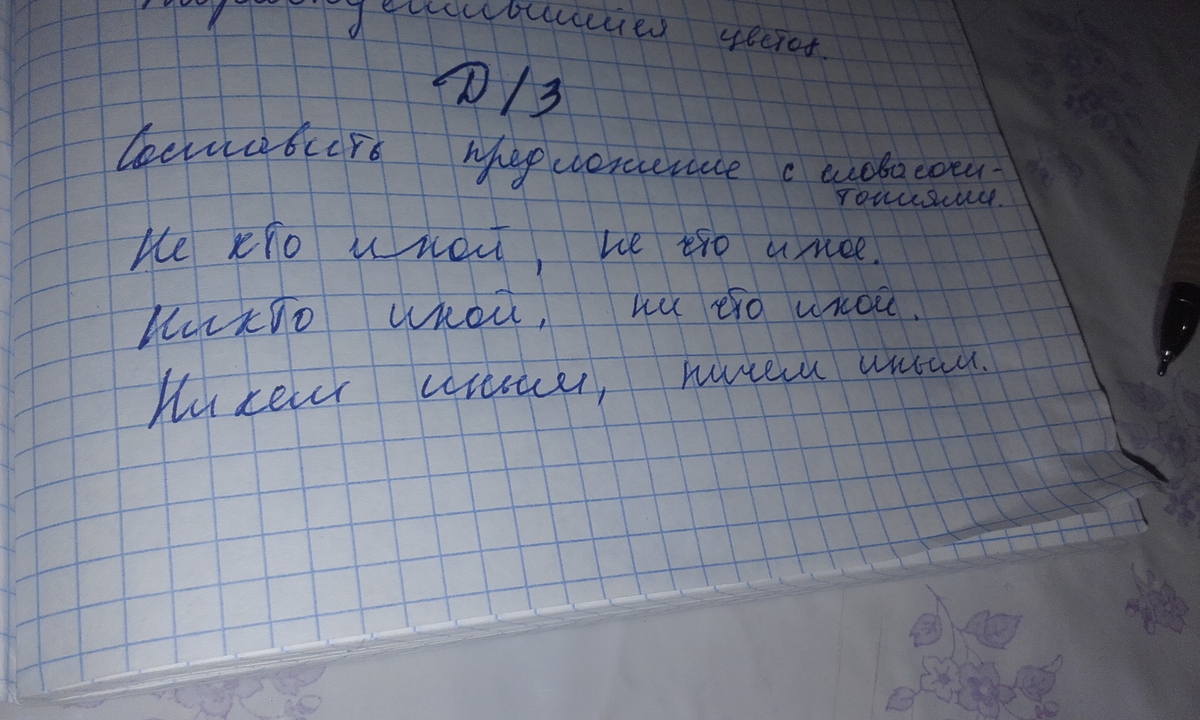 цветок.
Д/З
Составить предложение с словасочи-
таниями.
Не кто иной, не что иное.
Никто иной, ни что иной.
Ни кем иным, ничем иным.